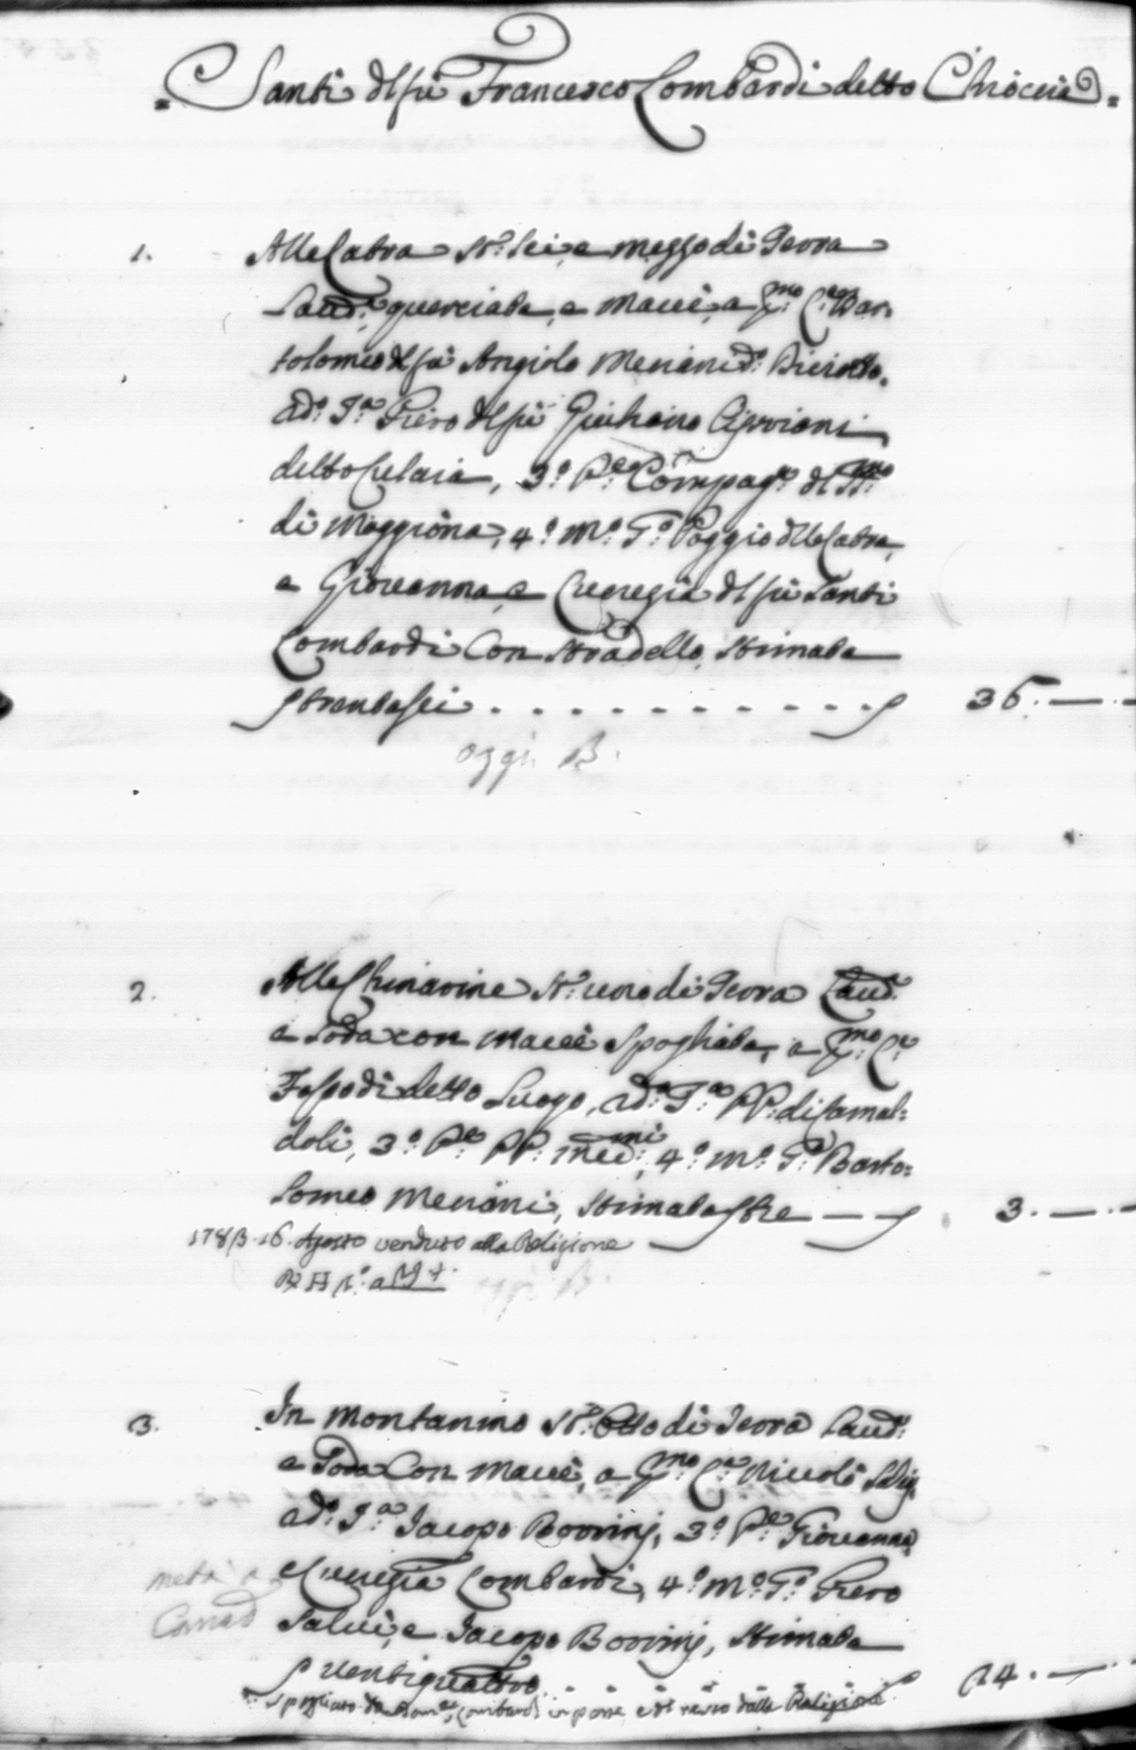 = Santi dl fù Francesco Lombardi detto Chioccia =
1. Alle Catra St: sei, e mezzo di Terra
Laud: querciata, e Macei, a P:mo C:e Bar:
tolomeo dl fù Angiolo Menconi d:o
ad: T:a Piero dl fù Giuliano Cipriani
detto Culaia, 3:o P:e Compag: dl SS:mo
di Moggiona, 4:o M:o T:a Poggio dlle Catra,
e Giovanna, e Lucregia dl fù Santi
Lombardi Con stradello, stimata
trentasei . . . . . . . . . . . 36. —
oggi B.
2. Alle Chinarine St: uno di Terra Laud:
a Soda con Macei Spogliata, a P:mo C:e
Fosso di detto Luogo, ad:o T:a PP: di Camal:
doli, 3:o P:e PP: med:mi, 4:o M:o T:a Barto:
lomeo Menconi, stimata tre — — 3. —
16. Agosto venduto alla Religione
oggi B.
3. In Montanino St: Otto di Terra Laud:
a Soda Con Macei, a P:mo C:e Niccolò
ad:o T:a Iacopo Bovinj, 3:o P:e Giovanna,
e Lucregia Lombardi, 4:o M:o T:a Piero
metà a
Salvi, e Iacopo Bovinj, stimata
ventiquattro . . . . . . 24. —
Spogliato da Lombardi in parte e dl resto dalla Religione